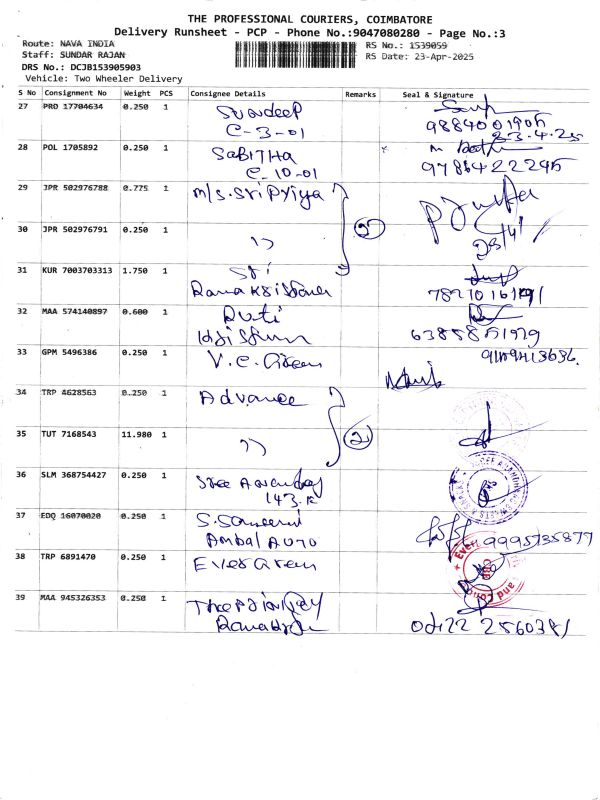 THE PROFESSIONAL COURIERS, COIMBATORE
Delivery Runsheet - PCP - Phone No.:9047080280 - Page No.:3
Route: NAVA INDIA
RS No.: 1539059
Staff: SUNDAR RAJAN
RS Date: 23-Apr-2025
DRS No.: DCJB153905903
Vehicle: Two Wheeler Delivery
S No Consignment No Weight PCS Consignee Details Remarks Seal & Signature
27 PRO 17704634 0.250 1
C-3-01
9884001905
23.4.25
28 POL 1705892 0.250 1 SABITHA
C-10-01
9786422295
29 JPR 502976788 0.775 1 M/S.Sri Priya
30 JPR 502976791 0.250 1 ''
31 KUR 7003703313 1.750 1 Sri
32 MAA 574140897 0.600 1
33 GPM 5496386 0.250 1 V.C. Green
34 TRP 4628563 0.250 1 Advance
35 TUT 7168543 11.980 1 '' 2
36 SLM 368754427 0.250 1 Sree
143.R
37 EDQ 16070020 0.250 1
Ambal Auto 9995735877
38 TRP 6891470 0.250 1 Ever Green
39 MAA 945326353 0.250 1
0422 2560381